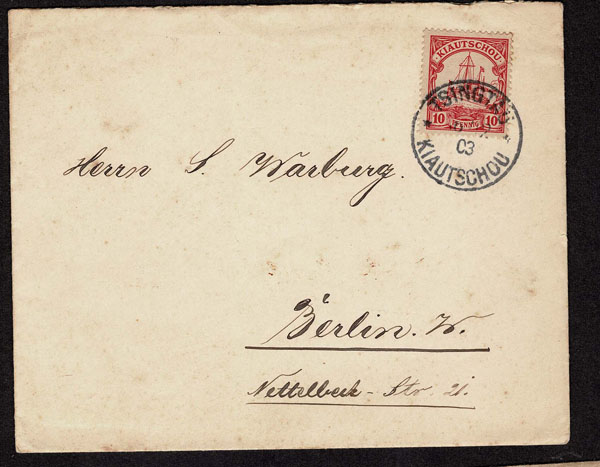 KIAUTSCHOU
10 PFENNIG 10
TSINGTAU
03
KIAUTSCHOU
Herrn S. Warburg.
Berlin. W.
Nettelbeck-Str. 21.